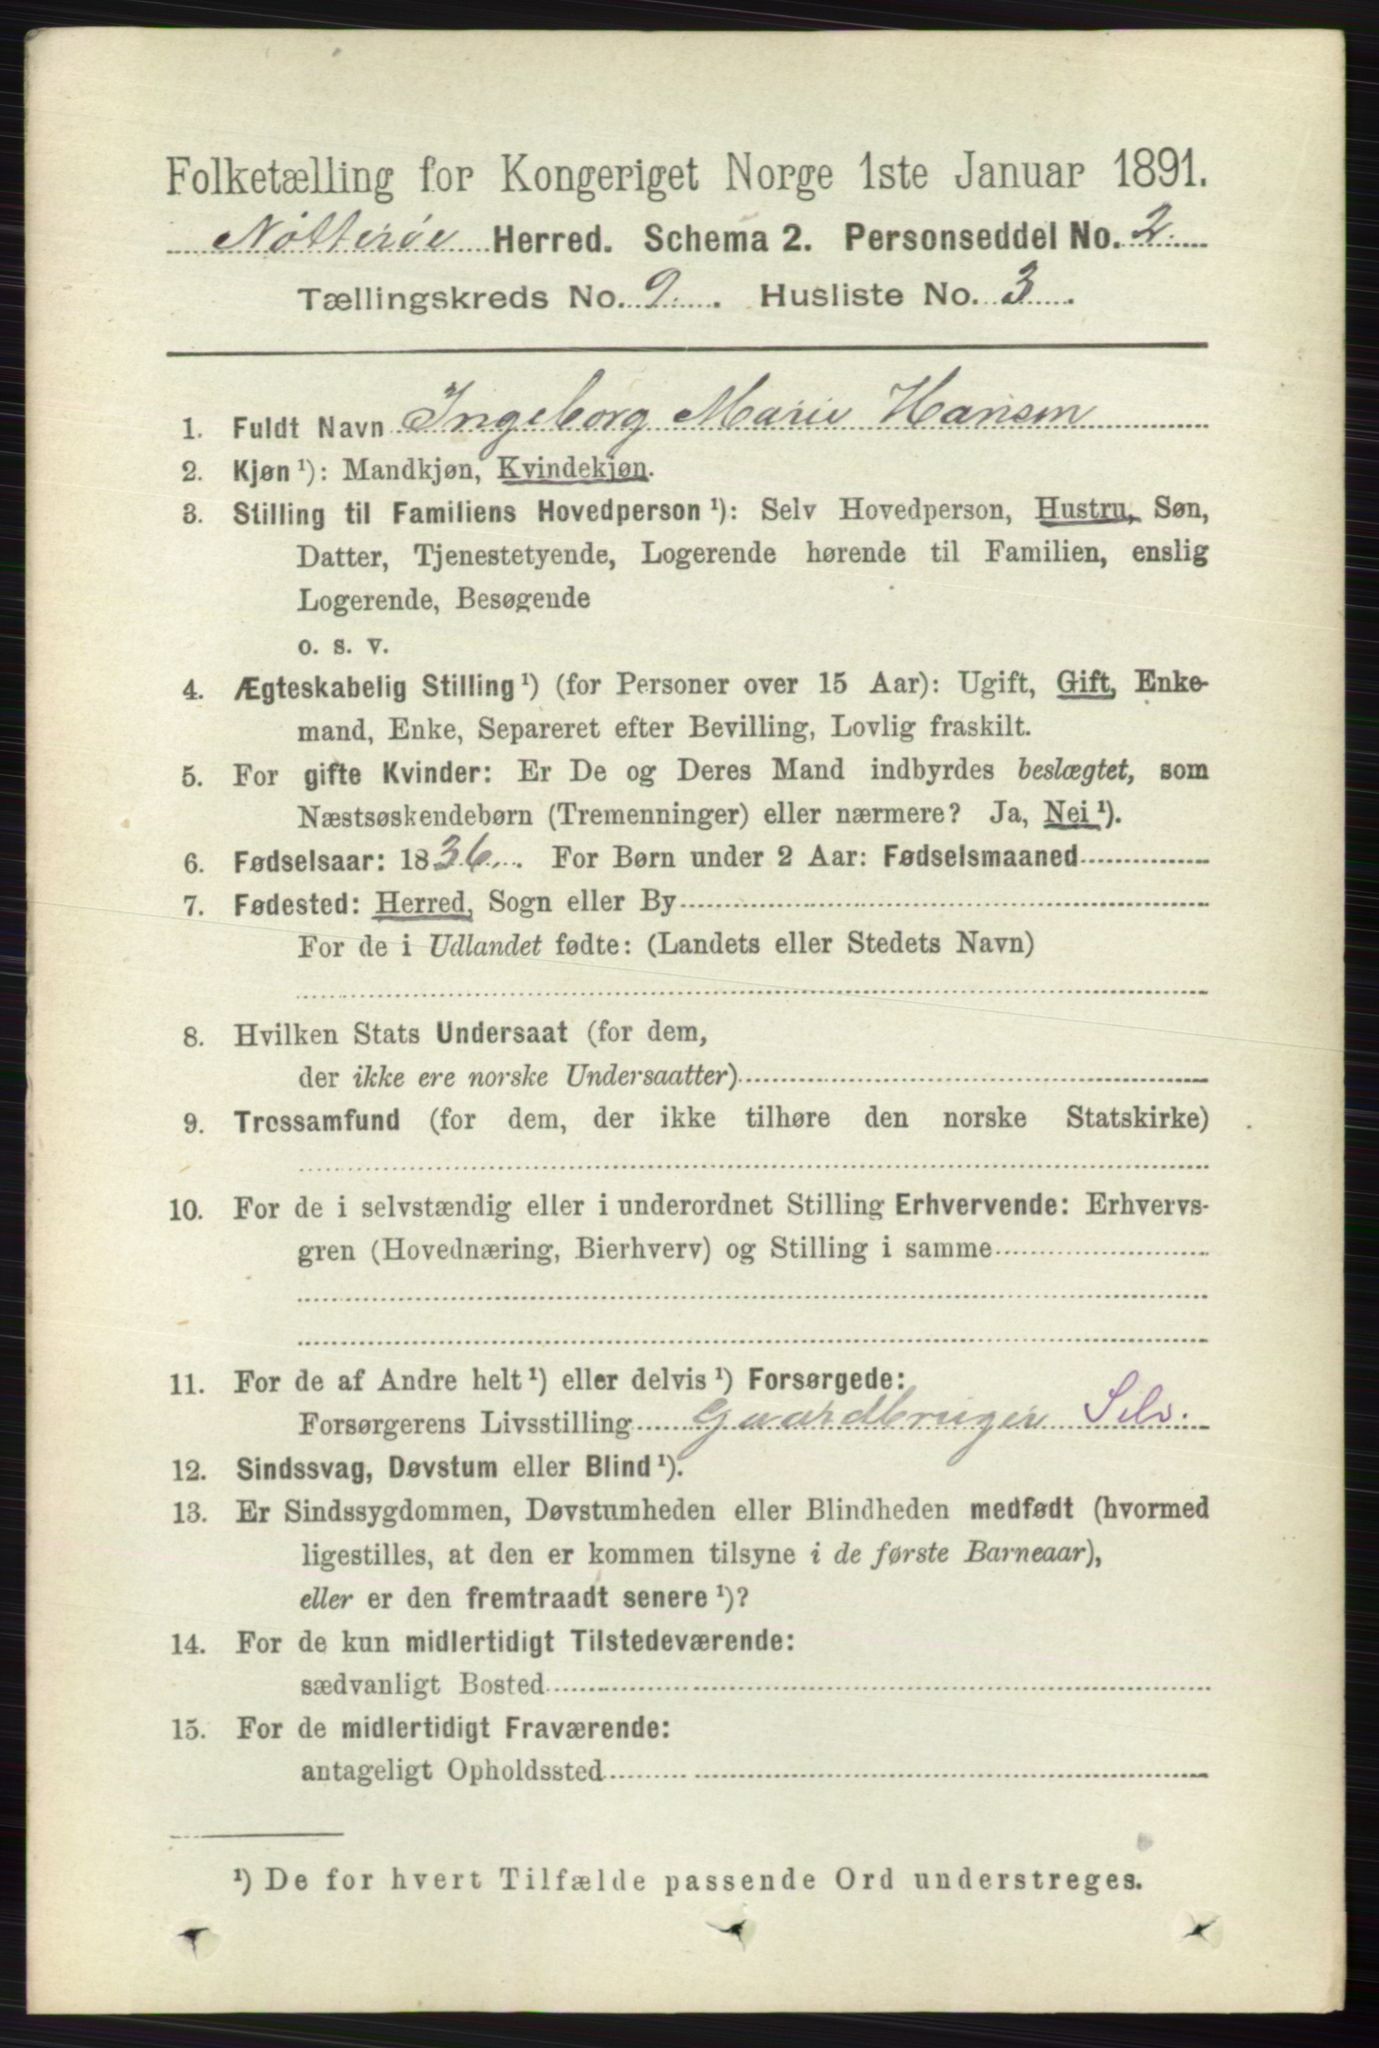 Folketælling for Kongeriget Norge 1ste Januar 1891.
Nøtterøe Herred. Schema 2. Personseddel No. 2.
Tællingskreds No. 9. Husliste No. 3.
1. Fuldt Navn Ingeborg Marie Hansen
2. Kjøn ¹): Mandkjøn, Kvindekjøn.
3. Stilling til Familiens Hovedperson ¹): Selv Hovedperson, Hustru, Søn,
Datter, Tjenestetyende, Logerende hørende til Familien, enslig
Logerende, Besøgende
o. s. v.
4. Ægteskabelig Stilling ¹) (for Personer over 15 Aar): Ugift, Gift, Enke-
mand, Enke, Separeret efter Bevilling, Lovlig fraskilt.
5. For gifte Kvinder: Er De og Deres Mand indbyrdes beslægtet, som
Næstsøskendebørn (Tremenninger) eller nærmere? Ja, Nei ¹).
6. Fødselsaar: 1836. For Børn under 2 Aar: Fødselsmaaned
7. Fødested: Herred, Sogn eller By
For de i Udlandet fødte: (Landets eller Stedets Navn)
8. Hvilken Stats Undersaat (for dem,
der ikke ere norske Undersaatter)
9. Trossamfund (for dem, der ikke tilhøre den norske Statskirke)
10. For de i selvstændig eller i underordnet Stilling Erhvervende: Erhvervs-
gren (Hovednæring, Bierhverv) og Stilling i samme
11. For de af Andre helt ¹) eller delvis ¹) Forsørgede:
Forsørgerens Livsstilling Gaardbruger Selv.
12. Sindssvag, Døvstum eller Blind ¹).
13. Er Sindssygdommen, Døvstumheden eller Blindheden medfødt (hvormed
ligestilles, at den er kommen tilsyne i de første Barneaar),
eller er den fremtraadt senere ¹)?
14. For de kun midlertidigt Tilstedeværende:
sædvanligt Bosted
15. For de midlertidigt Fraværende:
antageligt Opholdssted
¹) De for hvert Tilfælde passende Ord understreges.